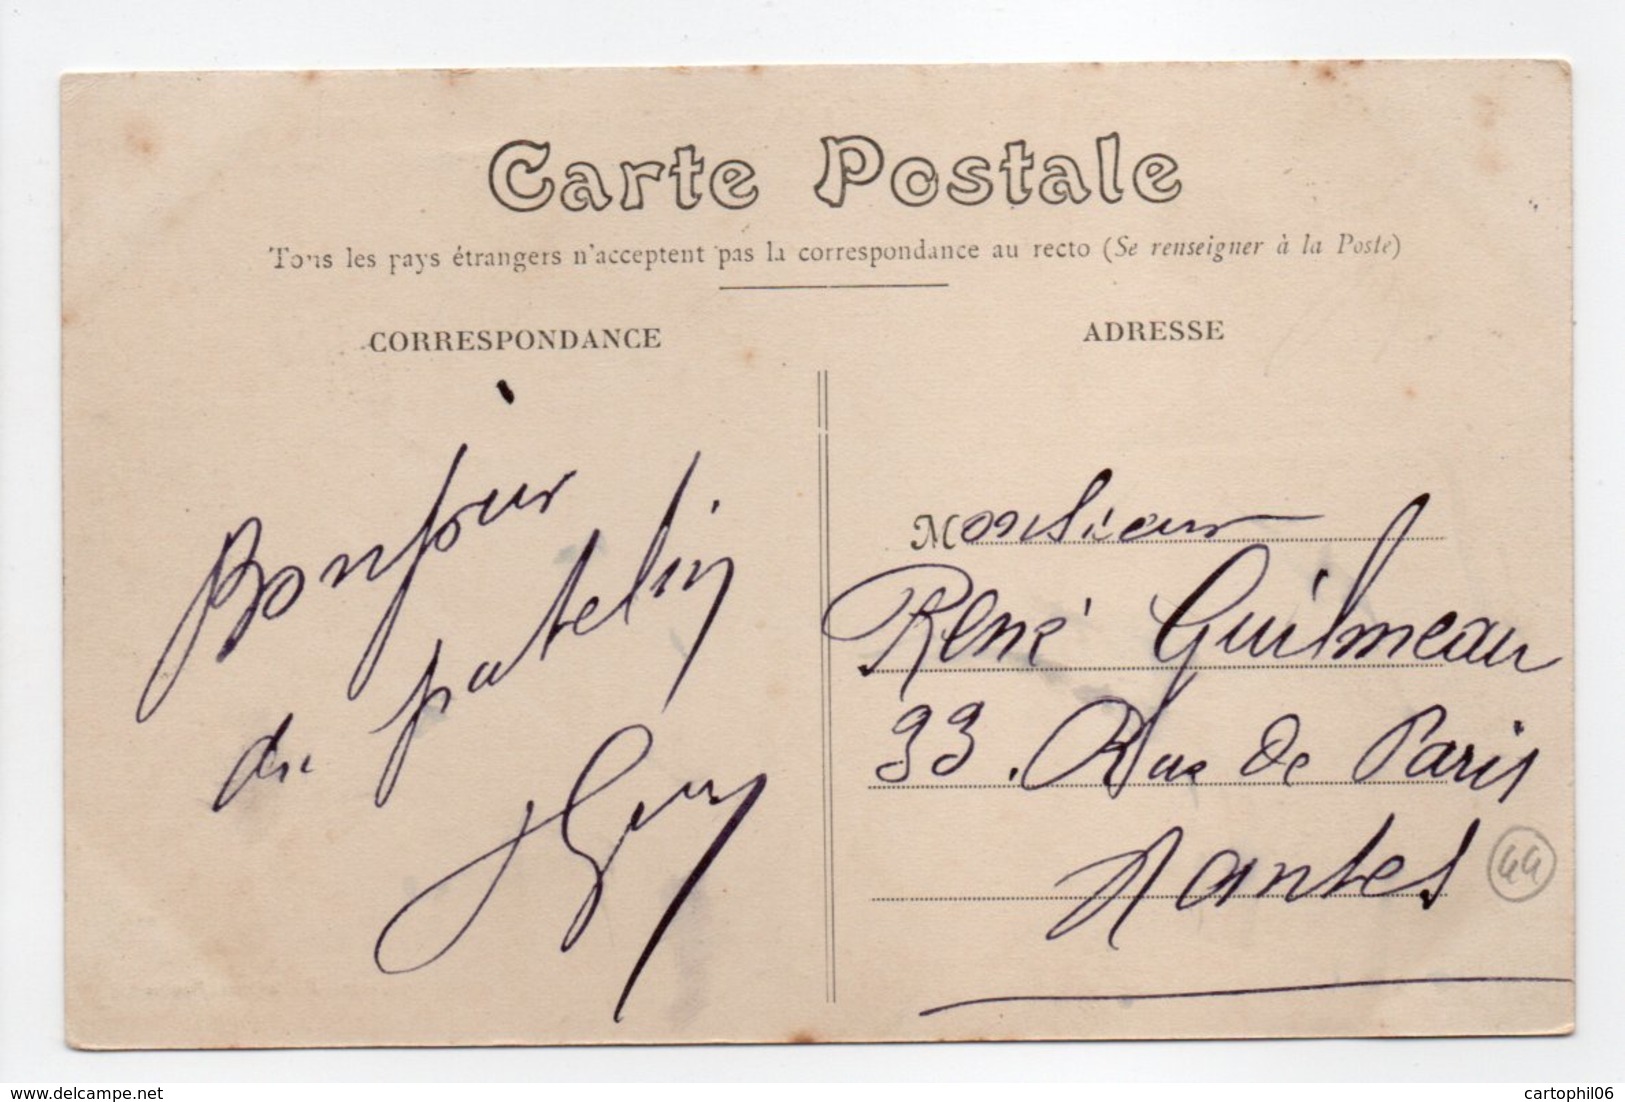 Carte Postale
Tous les pays étrangers n'acceptent pas la correspondance au recto (Se renseigner à la Poste)
CORRESPONDANCE
ADRESSE
Bonjour
du patelin
Monsieur
René Guilmeau
33. Rue de Paris
Nantes
44
delcampe.net
cartophil06